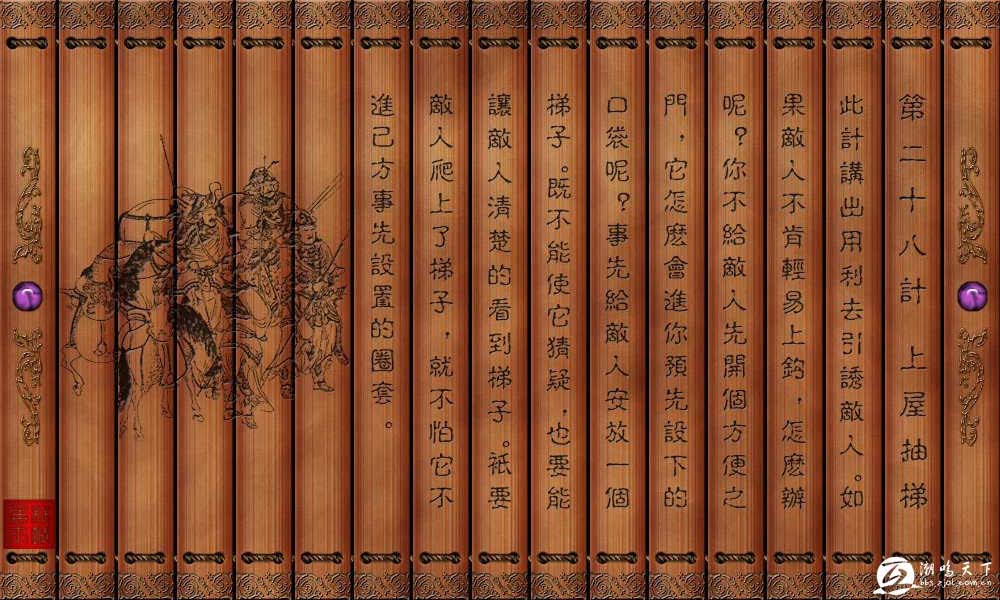 第二十八計 上屋抽梯
此計講出用利去引誘敵人。如
果敵人不肯輕易上鈎,怎麽辦
呢?你不給敵人先開個方便之
門,它怎麽會進你預先設下的
口袋呢?事先給敵人安放一個
梯子。既不能使它猜疑,也要能
讓敵人清楚的看到梯子。衹要
敵人爬上了梯子,就不怕它不
進己方事先設置的圈套。
潮鳴天下
bbs.zjol.com.cn